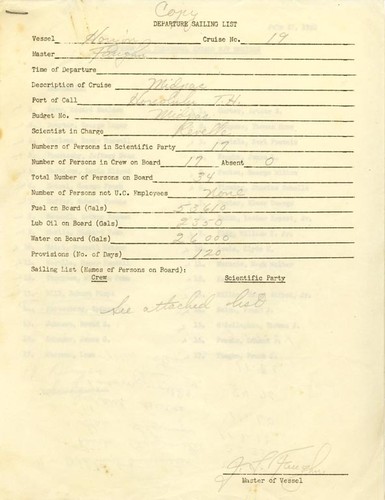 Copy
DEPARTURE SAILING LIST
Vessel Horizon Cruise No. 19
Master
Time of Departure
Description of Cruise Midpac
Port of Call Honolulu T.H.
Budget No. Midpac
Scientist in Charge Revelle
Numbers of Persons in Scientific Party 17
Number of Persons in Crew on Board 17 Absent 0
Total Number of Persons on Board 34
Number of Persons not U.C. Employees None
Fuel on Board (Gals) 53610
Lub Oil on Board (Gals) 2350
Water on Board (Gals) 26000
Provisions (No. of Days) 120
Sailing List (Names of Persons on Board):
Crew Scientific Party
See attached list
Master of Vessel